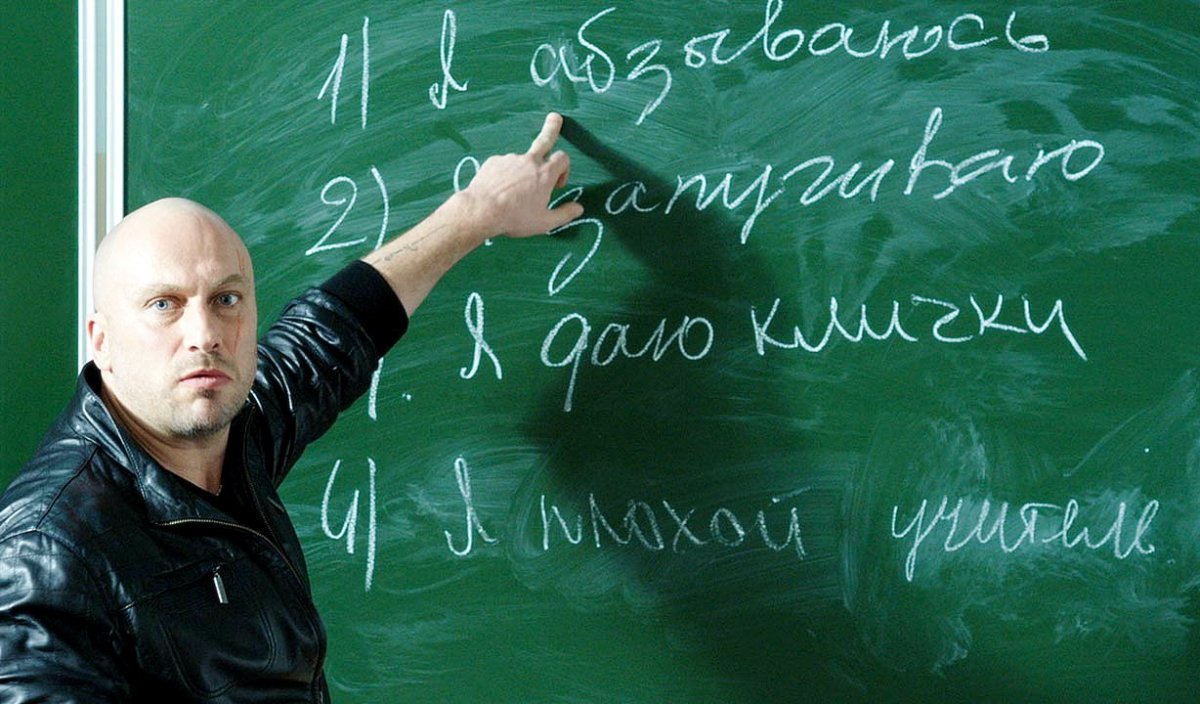 1) Я абзываюсь
2) Я запугиваю
) Я даю клички
4) Я плохой учитель